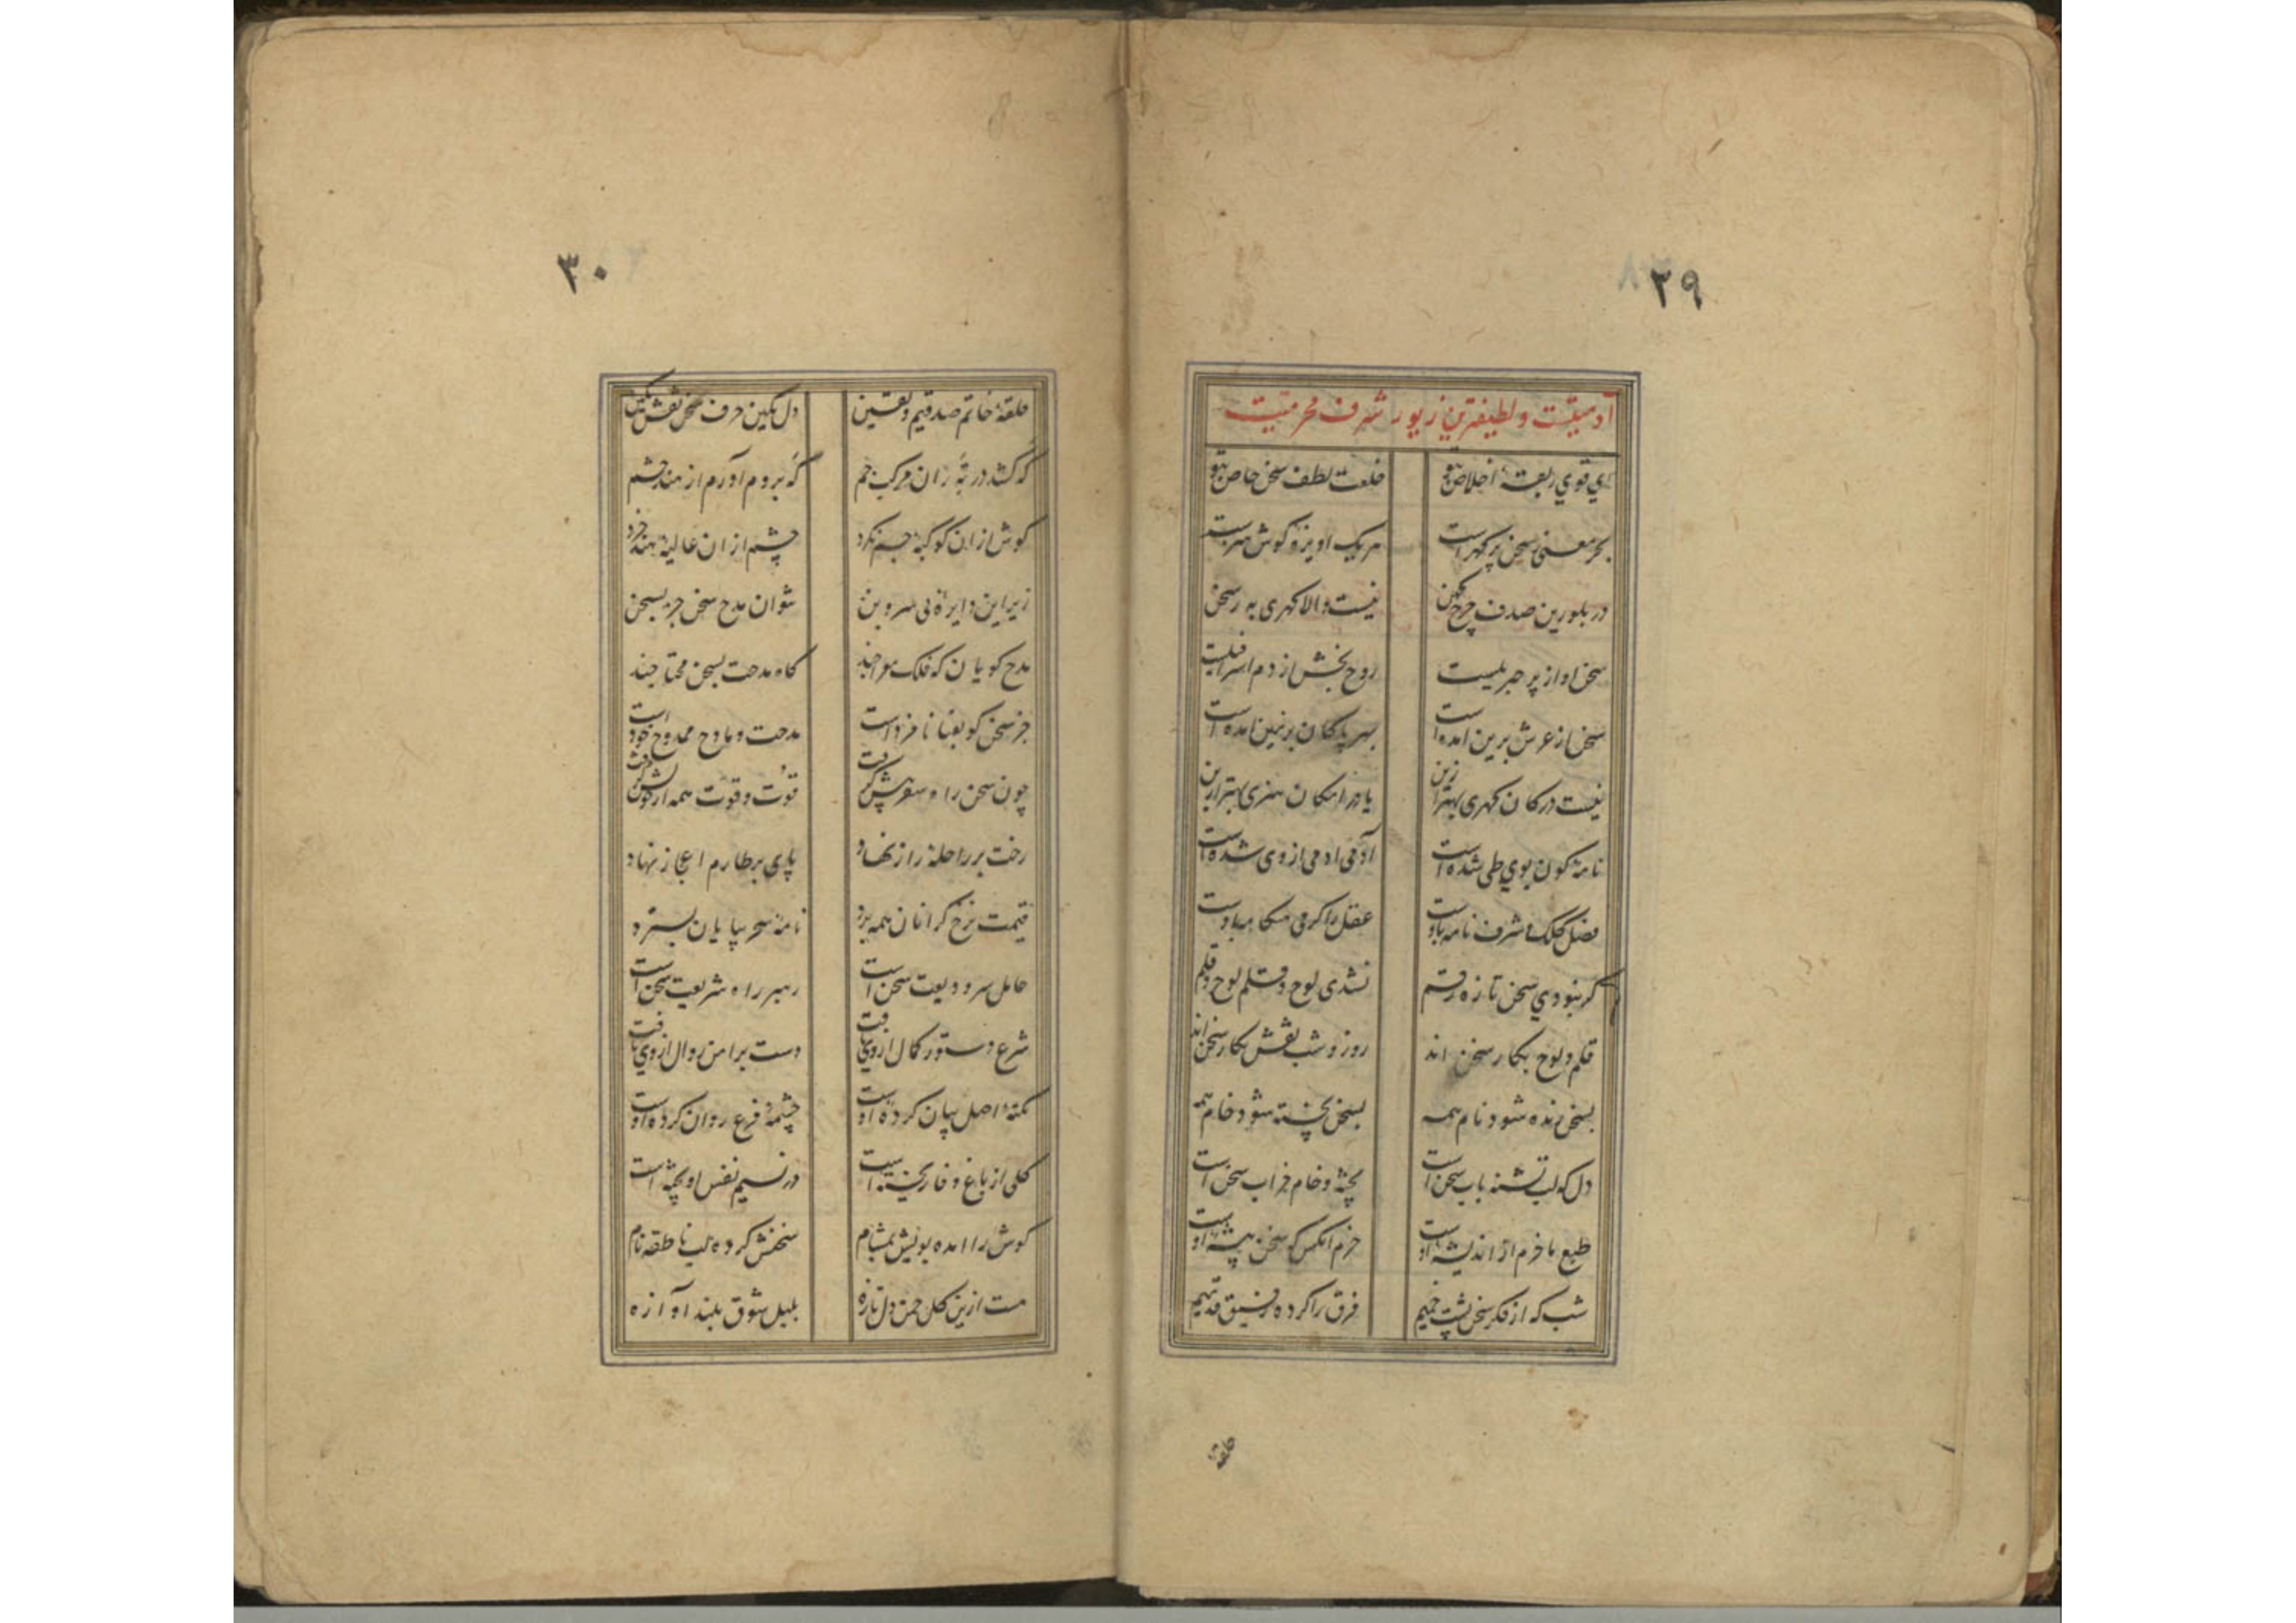 ۲۹
آدمیتست و لطیفترین زیور شرف محرمیتیت
ای قوی ربقهٔ اخلاص بتو خلعت لطف سخن خاص بتو
بحر معنی ز سخن پر گهر است هر یک اویزهٔ گوش هنرست
در بلورین صدف چرخ کهن نیست والا گهری به ز سخن
سخن اواز پر جبریلیست روح بخش از دم اسرافیلیست
سخن از عرش برین امده است بهر پاکان بزمین امده است
نیست در کان گهری بهتر ازین یا در امکان هنری بهتر ازین
نامهٔ کون بوی طی شده است آدمی ادمی از وی شده است
فضل کلک و شرف نامه باوست عقل را گرمی هنکامه باوست
گر نبودی سخن تازه رقم نشدی لوح و قلم لوح و قلم
قلم و لوح بکار سخن اند روز و شب نقش نکار سخن اند
بسخن زنده شود نام همه بسخن پخته شود خام همه
دل که لب تشنه باب سخن است پخته و خام خراب سخن است
طبع ما خرم از اندیشهٔ اوست خرم انکس که سخن پیشهٔ اوست
شب که از فکر سخن پشت خمیم فرق را کرده رفیق قدمیم
حلقهٔ
۳۰
حلقهٔ خاتم صدقیم و یقین دل نگین حرف سخن نقش نگین
گه کشد در ته ران مرکب جم که بروم آورم از هند حشم
گوش ازان کوکبه جسم نکرد چشم ازان غالیه هند خرد
زیر این دایرهٔ بی سر و بن نتوان مدح سخن جز بسخن
مدح گویان که فلک معراجند گاه مدحت بسخن محتاجند
جز سخن کو بغنا نامزد است مدحت و مادح و ممدوح خود است
چون سخن را ه سفر پیش گرفت قوت و قوت همه از خویش گرفت
رخت بر راحلهٔ راز نهاد پای بر طارم اعجاز نهاد
قیمت نرخ گرانان همه برد نامهٔ سحر بپایان بسترد
حامل سر ودیعت سخن است رهبر راه شریعت سخن است
شرع دستور کمال از وی یافت دست بر امن زوال از وی یافت
نکتهٔ اصل بیان کردهٔ اوست چشمهٔ فرع روان کرده اوست
گلی از باغ وفا ریخته است در نسیم نفس او بیخته است
گوش را امده بویش بمشام سخنش کرده لب ناطقه نام
هست ازین گل چمن دل تازه بلبل شوق بلند آوازه